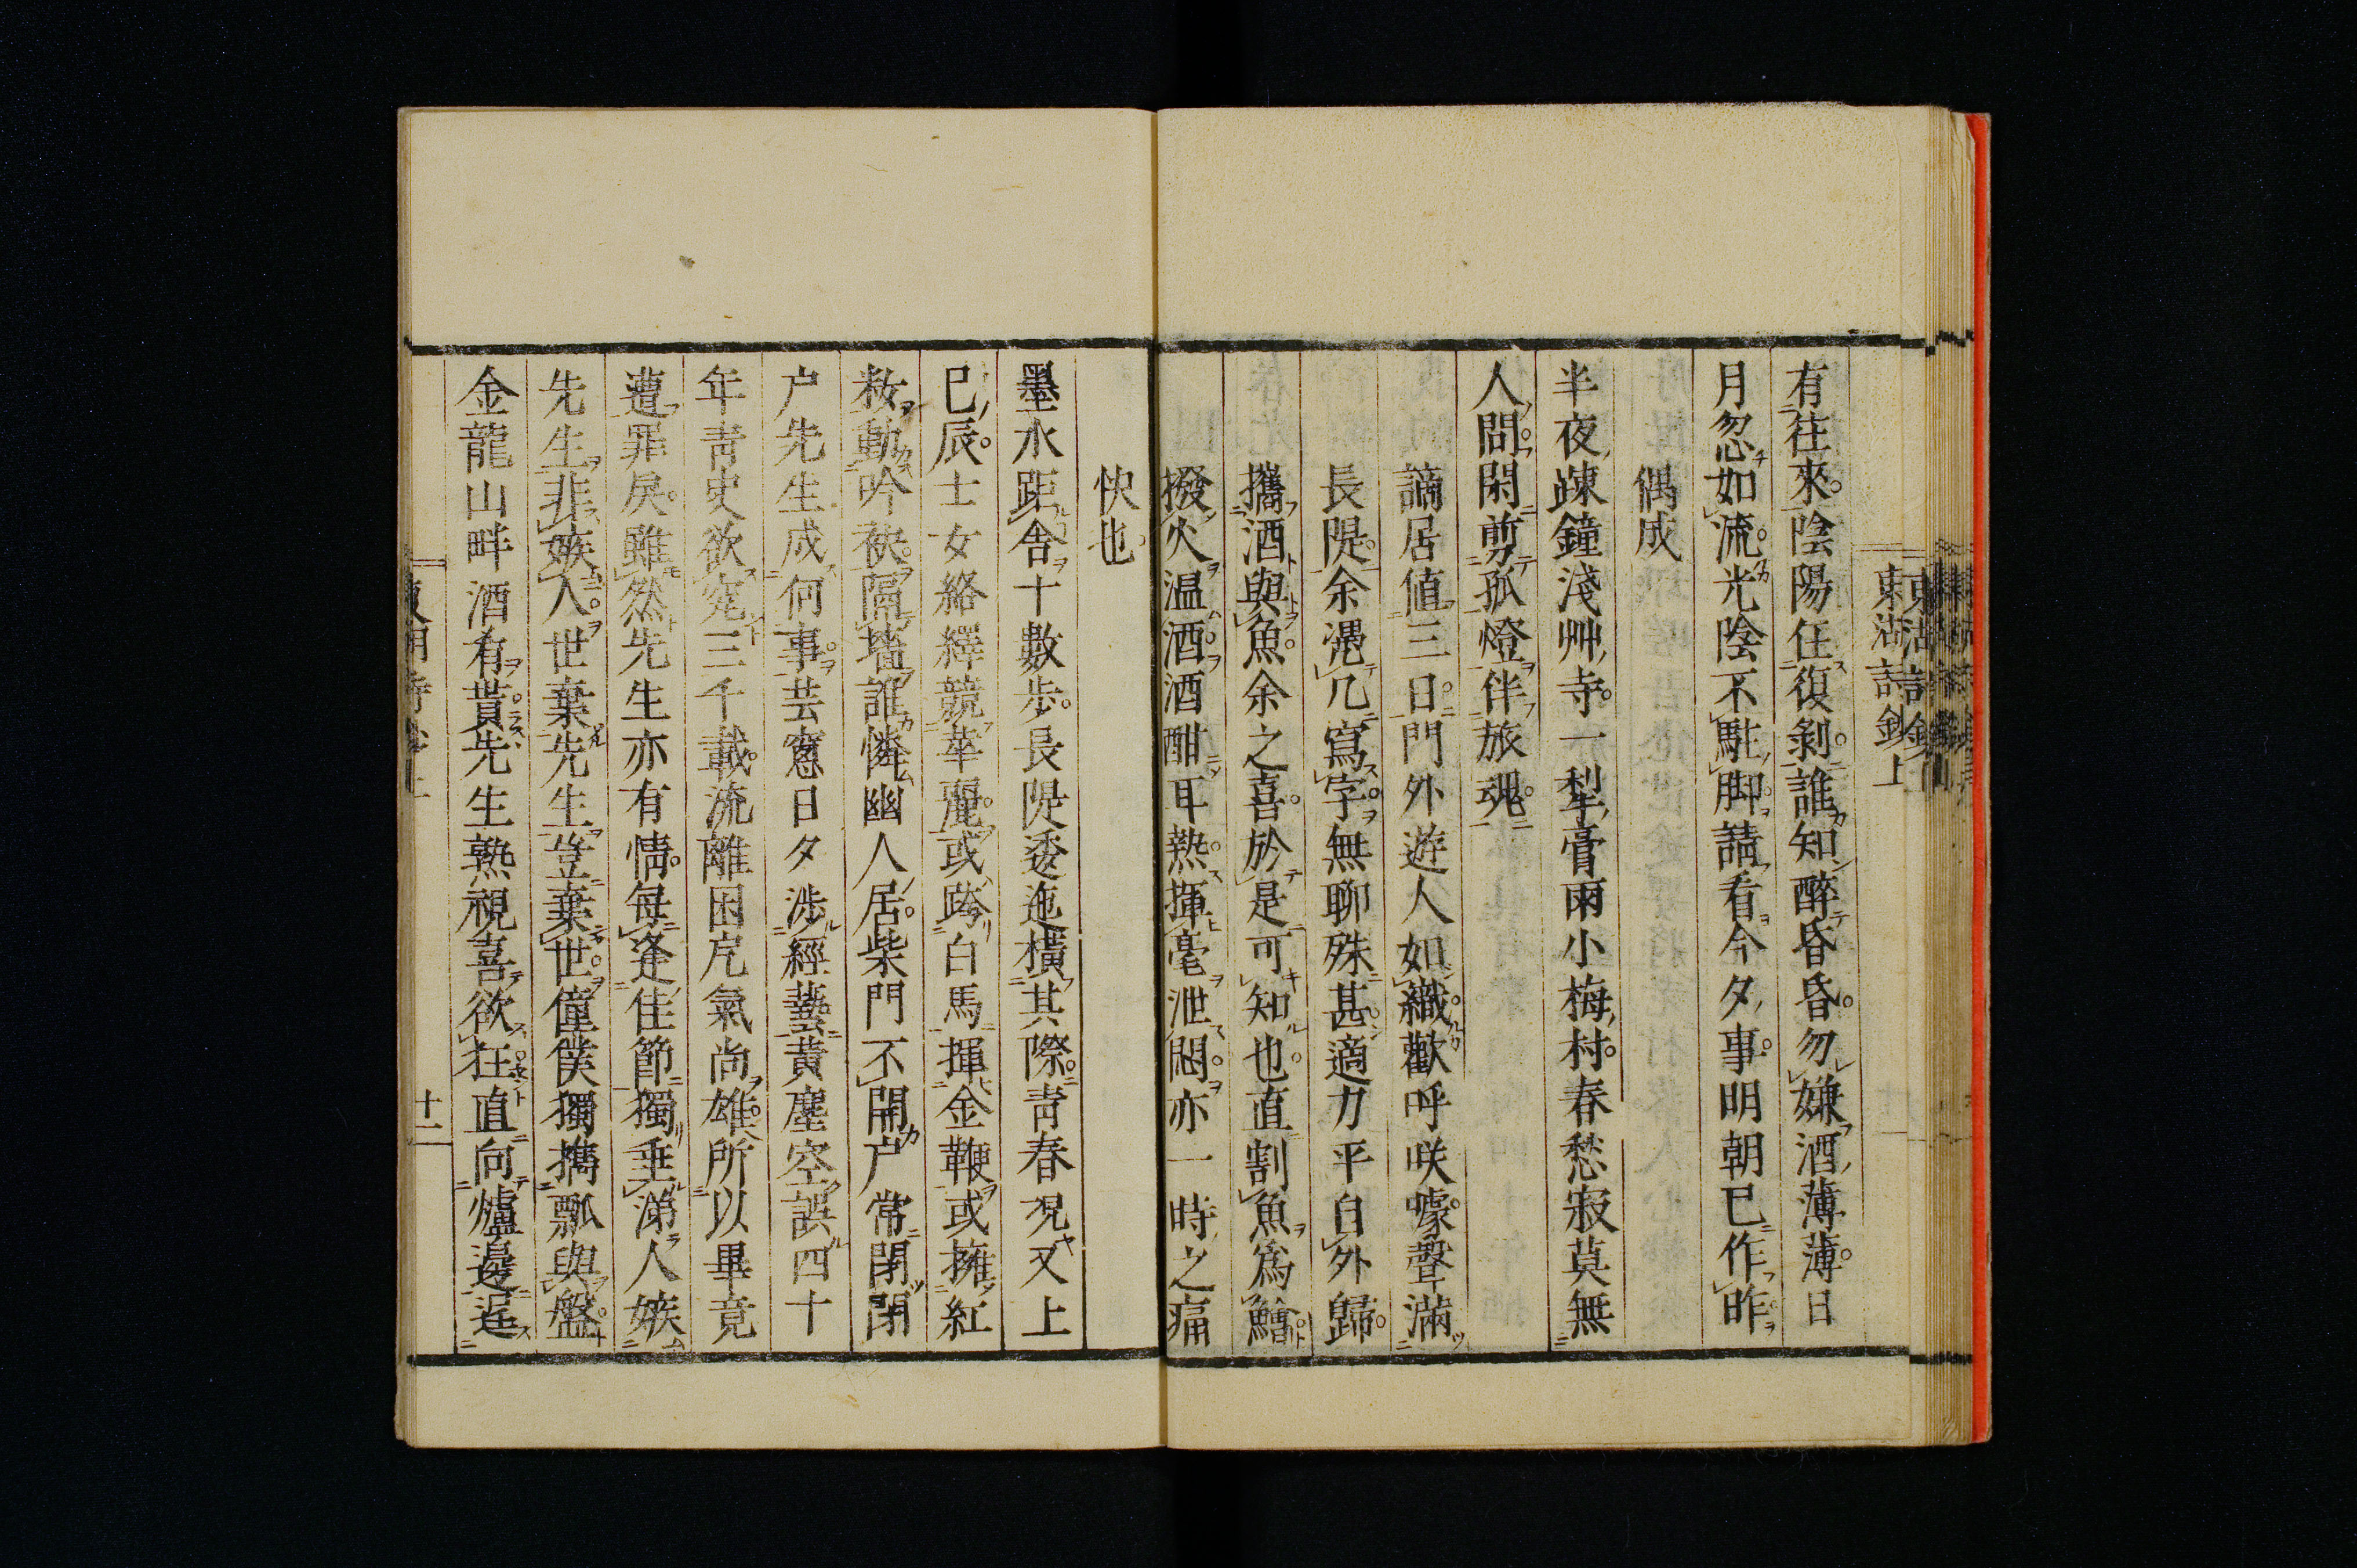 東湖詩鈔上
有往來陰陽任復剝誰知醉昏昏勿嫌酒薄薄日
月忽如流光陰不駐脚請看今夕事明朝已作昨
偶成
半夜疎鐘淺艸寺一犁膏雨小梅村春愁寂莫無
人問閑剪孤燈伴旅魂
謫居値三日門外遊人如織歡呼咲噱聲滿
長隄余凭几寫字無聊殊甚適力平自外歸
攜酒與魚余之喜於是可知也直割魚爲鱠
撥火温酒酒酣耳熱揮毫泄悶亦一時之痛
快也
墨水距舍十數歩長隄委迤橫其際青春況又上
巳辰士女絡繹競華麗或跨白馬揮金鞭或擁紅
粉動吟袂隔墻誰憐幽人居柴門不開戸常閉閉
戸先生成何事芸窻日夕渉經藝黄塵空誤四十
年青史欲窮三千載流離困戹氣尚雄所以畢竟
遭罪戻雖然先生亦有情毎逢佳節獨垂涕人嫉
先生非嫉人世棄先生豈棄世僮僕獨攜瓢與盤
金龍山畔酒肴貰先生熟視喜欲狂直向爐邊逞
十一